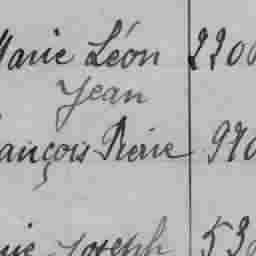 Marie Léon 2200
Jean
ançois Pierre 990
ie Joseph 530